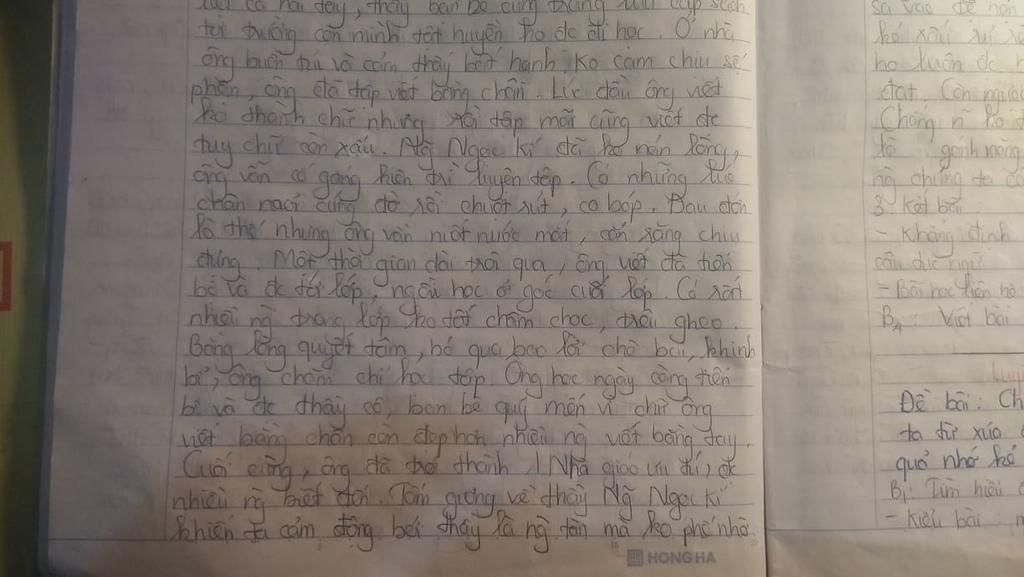 cả hai tay, thấy bạn bè cùng trang lứa cắp sách
tới trường còn mình tật huyền ko đc đi học. Ở nhà
ông buồn tủi và cảm thấy bất hạnh ko cam chịu số
phận, ông đã tập viết bằng chân. Lúc đầu ông viết
ko thành chữ nhưng rồi tập mãi cũng viết đc
tuy chữ còn xấu. Ng̃ Ngọc kí đã ko nản lòng,
ông vẫn cố gắng kiên trì luyện tập. Có những lúc
chân naói cứng đờ rồi chuột rút, co bóp. Đau đớn
là thế nhưng ông vẫn nuốt nước mắt, cắn răng chịu
đựng. Một thời gian dài trôi qua, ông viết đã tiến
bộ và đc tới lớp, ngồi học ở góc cuối lớp. Có rất
nhiều ng̀ trong lớp ko tốt châm chọc, trêu ghẹo.
Bằng lòng quyết tâm, bỏ qua bao lời chê bai, khinh
bỉ, ông chăm chỉ học tập. Ông học ngày càng tiến
bộ và đc thầy cô, bạn bè quý mến vì chữ ông
viết bằng chân còn đẹp hơn nhiều ng̀ viết bằng tay.
Cuối cùng, ông đã trở thành 1 Nhà giáo ưu tú, đc
nhiều ng̀ biết đến. Tấm gương về thầy Ng̃ Ngọc kí
khiến ta cảm động bởi thầy là ng̀ tàn mà ko phế nhờ
HONG HA
sa vào
ko xấu
họ luôn đc
đạt. Còn
Chẳng
gánh nặng
chúng ta
3. Kết bài
- Khẳng định
câu
- Bài học liên hệ
B4: Viết bài
Đề bài: Ch
ta từ xưa
quả nhớ kẻ
B1: Tìm hiểu
- Kiểu bài: